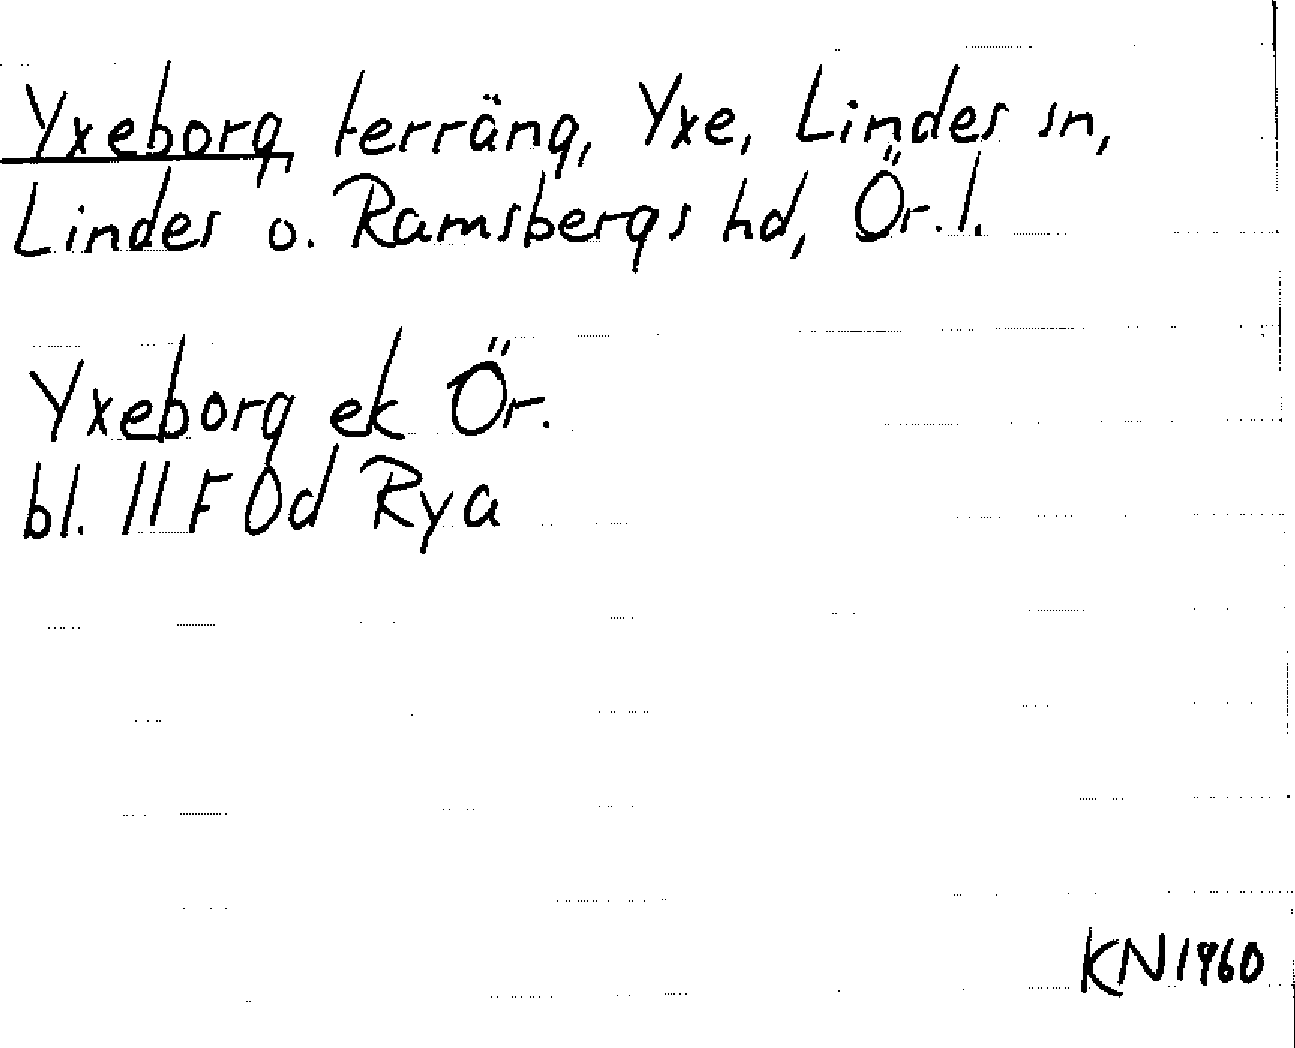 Yxeborg, terräng, Yxe, Lindes sn,
Lindes o. Ramsbergs hd, Ör. l.
Yxeborg ek Ör.
bl. 11F 0d Rya
KN 1960